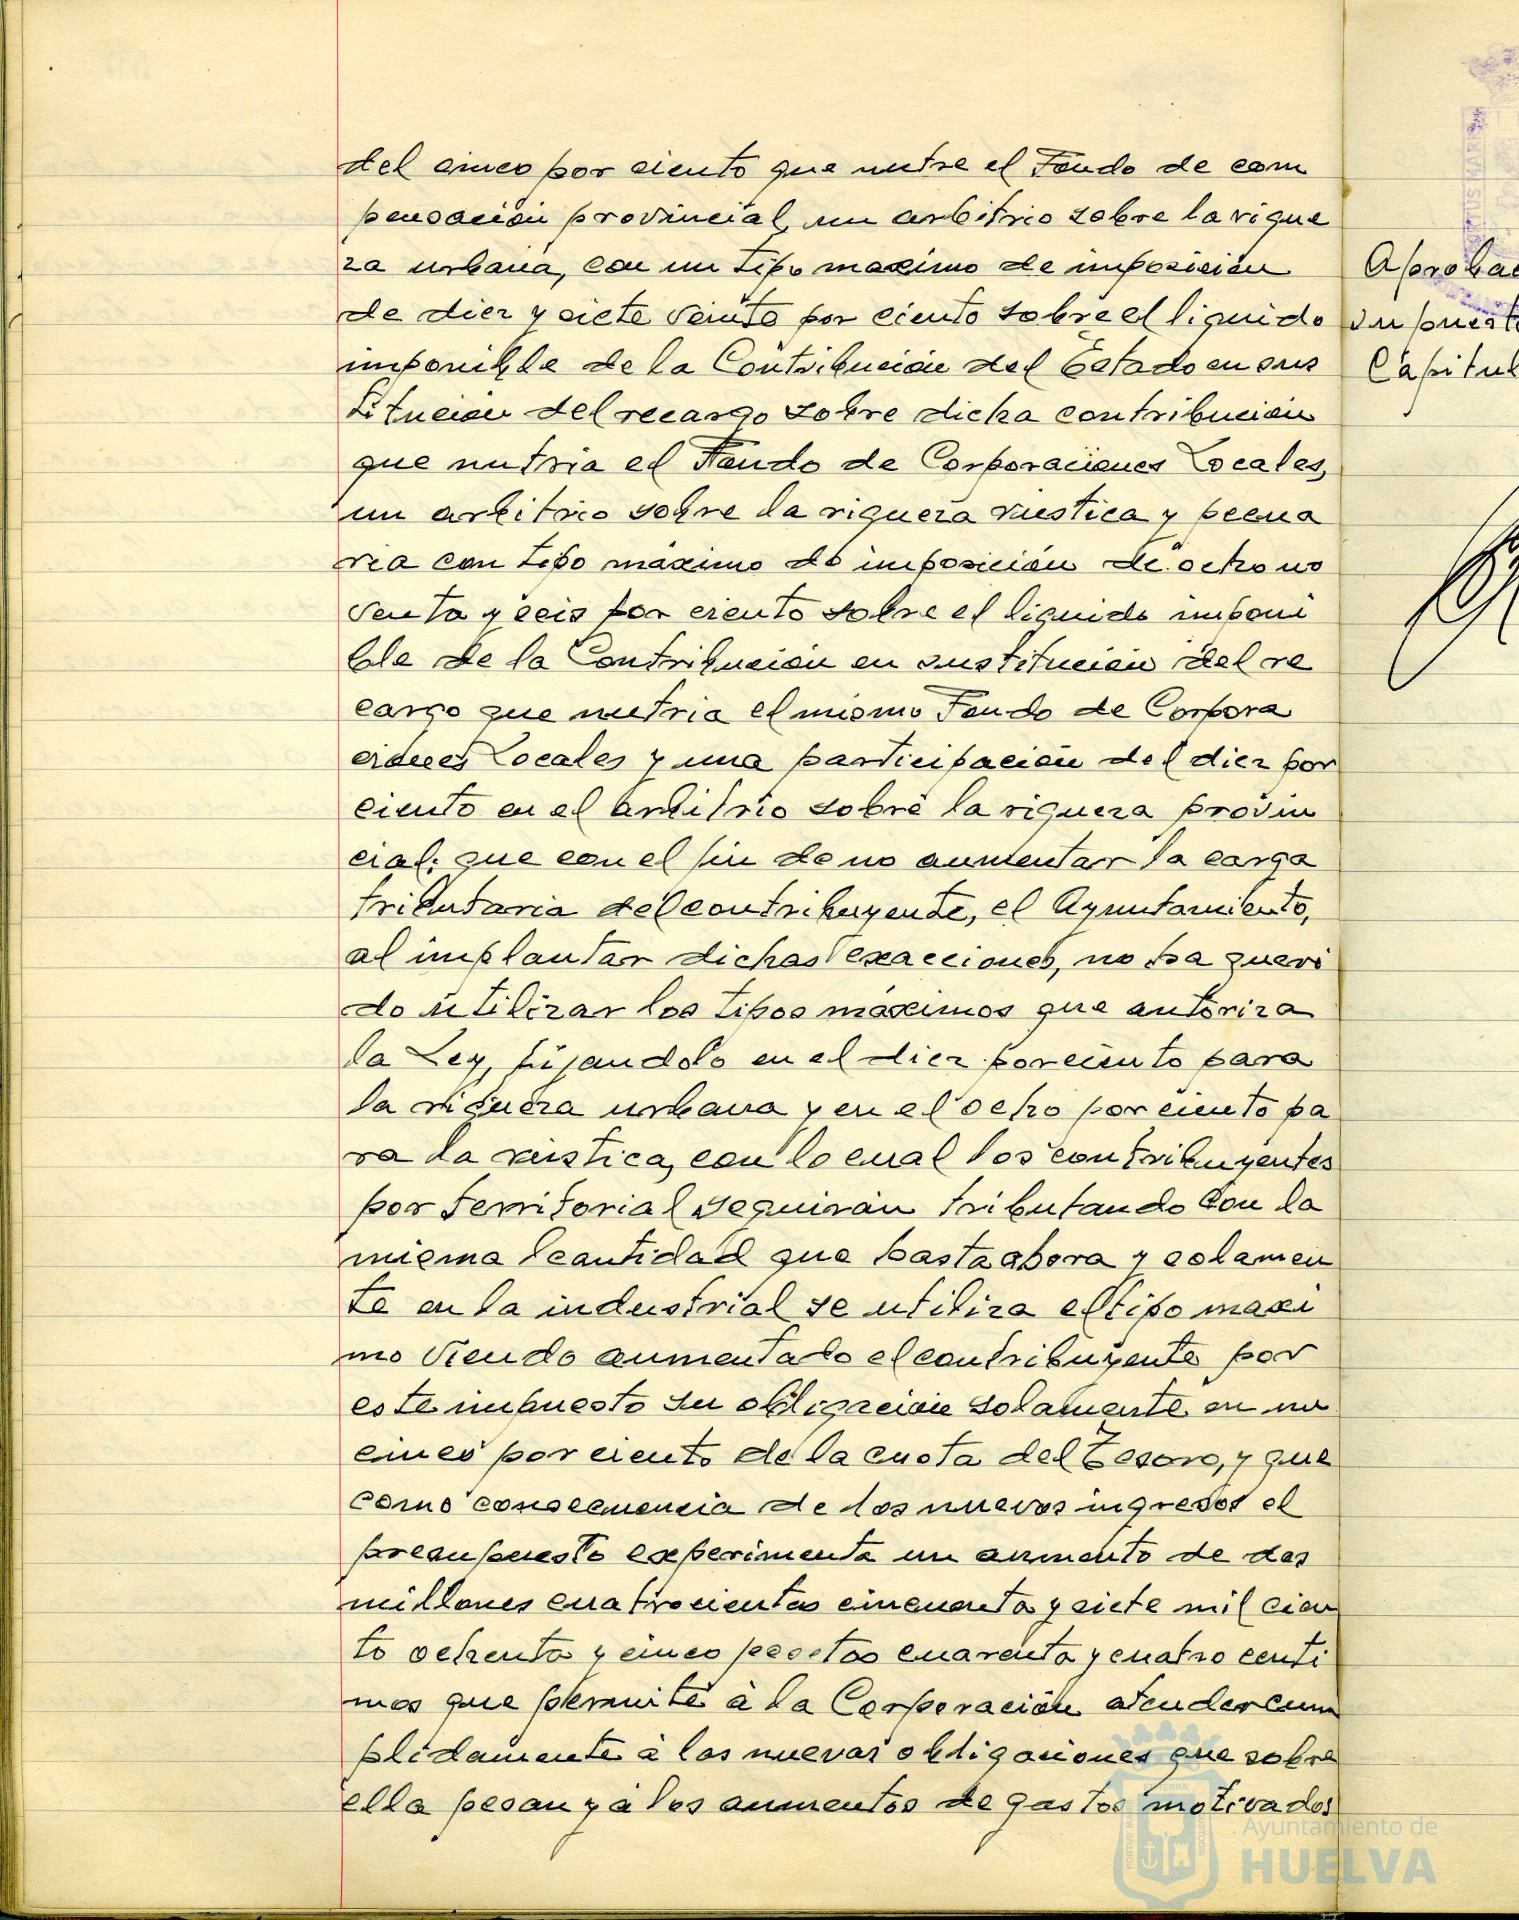 del cinco por ciento que nutre el Fondo de com
pensación provincial, un arbitrio sobre la rique
za urbana, con un tipo maximo de imposición
de diez y siete veinte por ciento sobre el liquido
imponible de la Contribución del Estado en sus
titucion del recargo sobre dicha contribución
que nutria el Fondo de Corporaciones Locales,
un arbitrio sobre la riqueza rústica y pecua
ria con tipo máximo de imposición de ocho no
venta y seis por ciento sobre el liquido imponi
ble de la Contribución en sustitución del re
cargo que nutria el mismo Fondo de Corpora
ciones Locales y una participación del diez por
ciento en el arbitrio sobre la riqueza provin
cial; que con el fin de no aumentar la carga
tributaria del contribuyente, el Ayuntamiento,
al implantar dichas exacciones, no ha queri
do utilizar los tipos máximos que autoriza
la Ley, fijandolo en el diez por ciento para
la riqueza urbana y en el ocho por ciento pa
ra la rústica, con lo cual los contribuyentes
por territorial seguirán tributando con la
misma cantidad que hasta ahora y solamen
te en la industrial se utiliza el tipo maxi
mo viendo aumentado el contribuyente por
este impuesto su obligación solamente en un
cinco por ciento de la cuota del Tesoro, y que
como consecuencia de los nuevos ingresos el
presupuesto experimenta un aumento de dos
millones cuatrocientas cincuenta y siete mil cien
to ochenta y cinco pesetas cuarenta y cuatro centi
mos que permite á la Corporación atender cum
plidamente á las nuevas obligaciones que sobre
ella pesan y á los aumentos de gastos motivados
Aprobac
su puest
Capitul
Ayuntamiento de
HUELVA